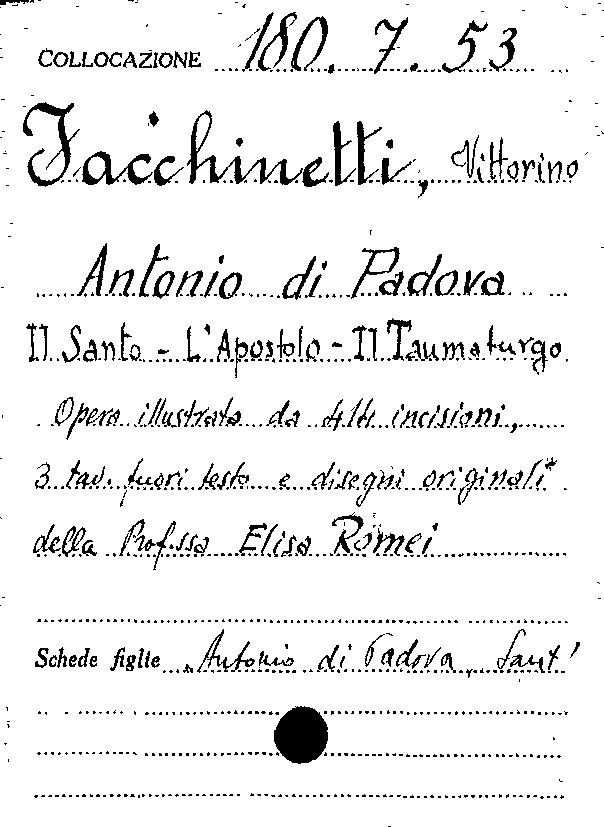 COLLOCAZIONE 180. 7. 53
Facchinetti, Vittorino
Antonio di Padova
Il Santo - L'Apostolo - Il Taumaturgo
Opera illustrata da 414 incisioni,
3 tav. fuori testo e disegni originali
della Prof.ssa Elisa Romei
Schede figlie Antonio di Padova, Sant'